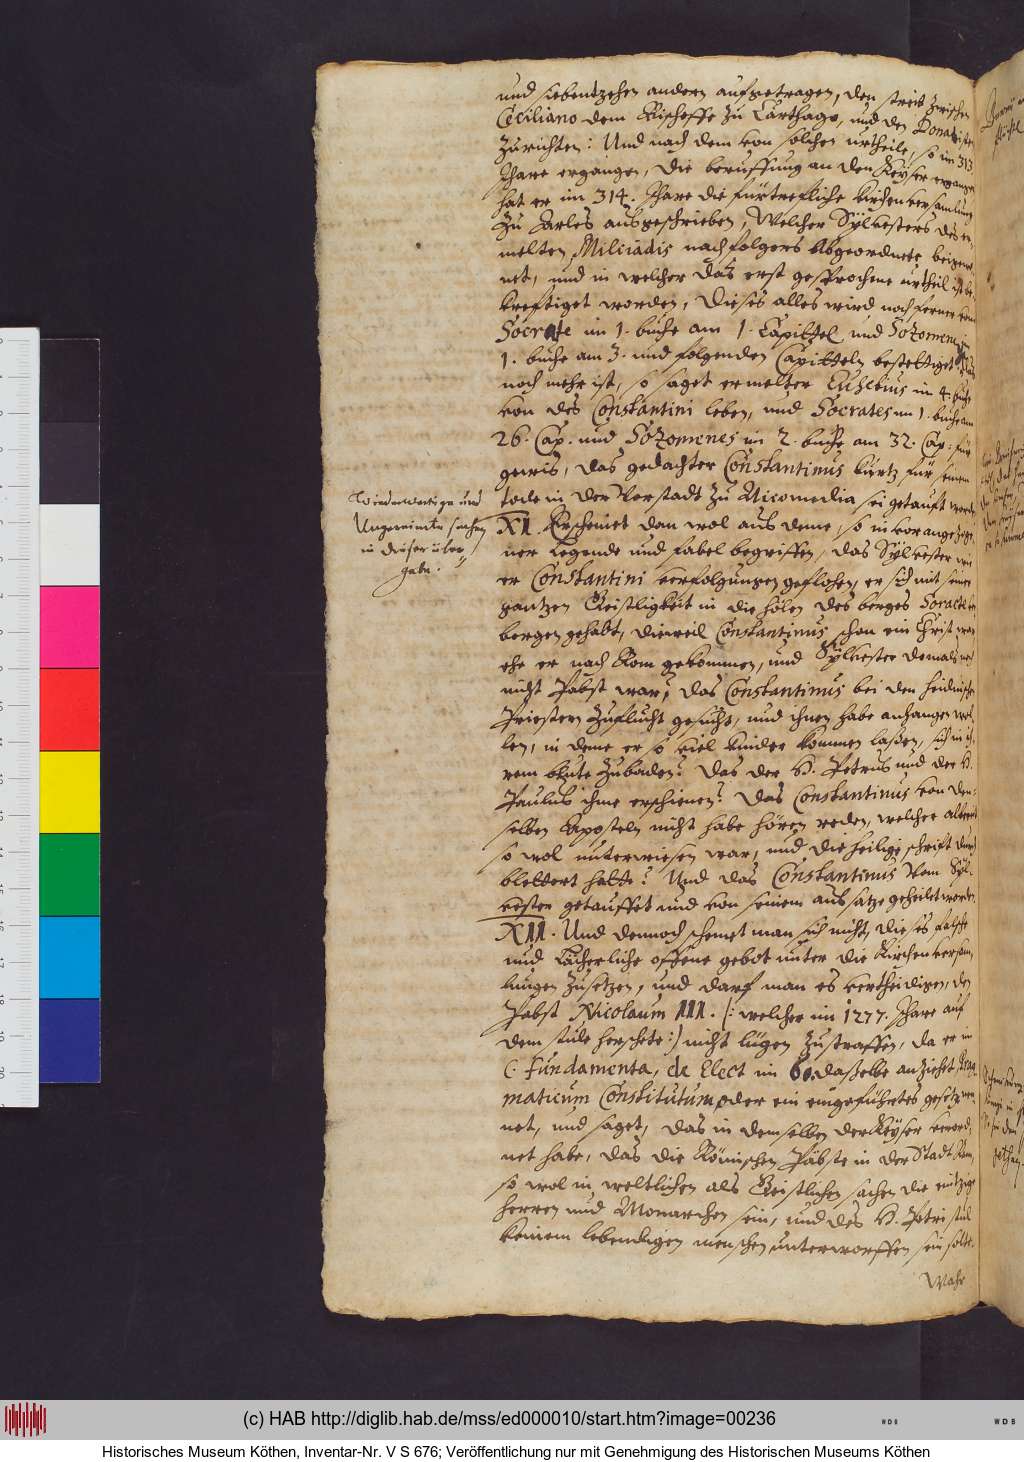 und siebentzehen andern aufgetragen, den streit zwischen
Ceciliano dem Bischoffe zu Carthago, und den Donatisten
zurichten: Und nach dem von solchen urtheile, so im 313
Jhare ergangen, die beruffung an den Keyser ergangen
hat er im 314. Jhare die fürtrefliche kirchenversamlung
zu Arles ausgeschrieben, welcher Sylvesters des er-
melten Milciadis nachfolgers Abgeordnete beigewo
net, und in welcher das erst gesprochene urtheil ist be-
kreftiget worden, Dieses alles wird noch ferner vom
Socrate im 1. buche am 1. Capittel und Sozomeno im
1. buche am 3. und folgenden Capitteln bestettiget
noch mehr ist, so saget ermelter Eusebius im 4. buche
von des Constantini leben, und Socrates im 1. buche am
26. Cap. und Sozomenes im 2. buche am 32. Cap. für
gewis, das gedachter Constantinus kurtz für seinem
tode in der Vorstadt zu Nicomedia sei getauft worden
Wiederwertige und
Ungereimte sachen
in dieser über-
gabe.
XI. Erscheinet dan wol aus deme, so in vorangezoge-
ner Legende und fabel begriffen, das Sylvester wie
er Constantini verfolgungen geflohen, er sich mit seiner
gantzen Geistligkeit in die hölen des berges Soracte ver
bergen gehabt, dieweil Constantinus schon ein Christ war
ehe er nach Rom gekommen, und Sylvester demals noch
nicht Pabst war? das Constantinus bei den heidnischen
Priestern zuflucht gesucht, und ihnen habe anhangen wol-
len, in deme er so viel kinder kommen laßen, sich in ih-
rem blute zubaden? Das der H. Petrus und der H.
Paulus ihme erschienen? Das Constantinus von den-
selben Aposteln nicht habe hören reden, welcher albereit
so wol unterwiesen war, und die heilige schrift durch
blettert hatte? Und das Constantinus vom Syl-
vester getauffet und von seinem aussatze geheilet worden.
XII. Und dennoch schemet man sich nicht, dieses falsche
und lächerliche offene gebot unter die Kirchenversam-
lungen zusetzen, und darf man es vertheidigen, den
Pabst Nicolaum III. (: welcher im 1277. Jhare auf
dem stule herschete:) nicht lügen zustraffen, da er in
C. Fundamenta, de Elect im 6. daßelbe anziehet Prag
maticum Constitutum, oder ein eingeführtes gesetz nen
net, und saget, das in demselben der Keyser verord-
net habe, das die Römischen Päbste in der Stadt Rom,
so wol in weltlichen als Geistlichen sachen die eintzige
herren und Monarchen sein, und des H. Petri stul
keinem lebendigen menschen unterworffen sein solte.
Wahr
(c) HAB http://diglib.hab.de/mss/ed000010/start.htm?image=00236
WDB
WDB
Historisches Museum Köthen, Inventar-Nr. V S 676; Veröffentlichung nur mit Genehmigung des Historischen Museums Köthen